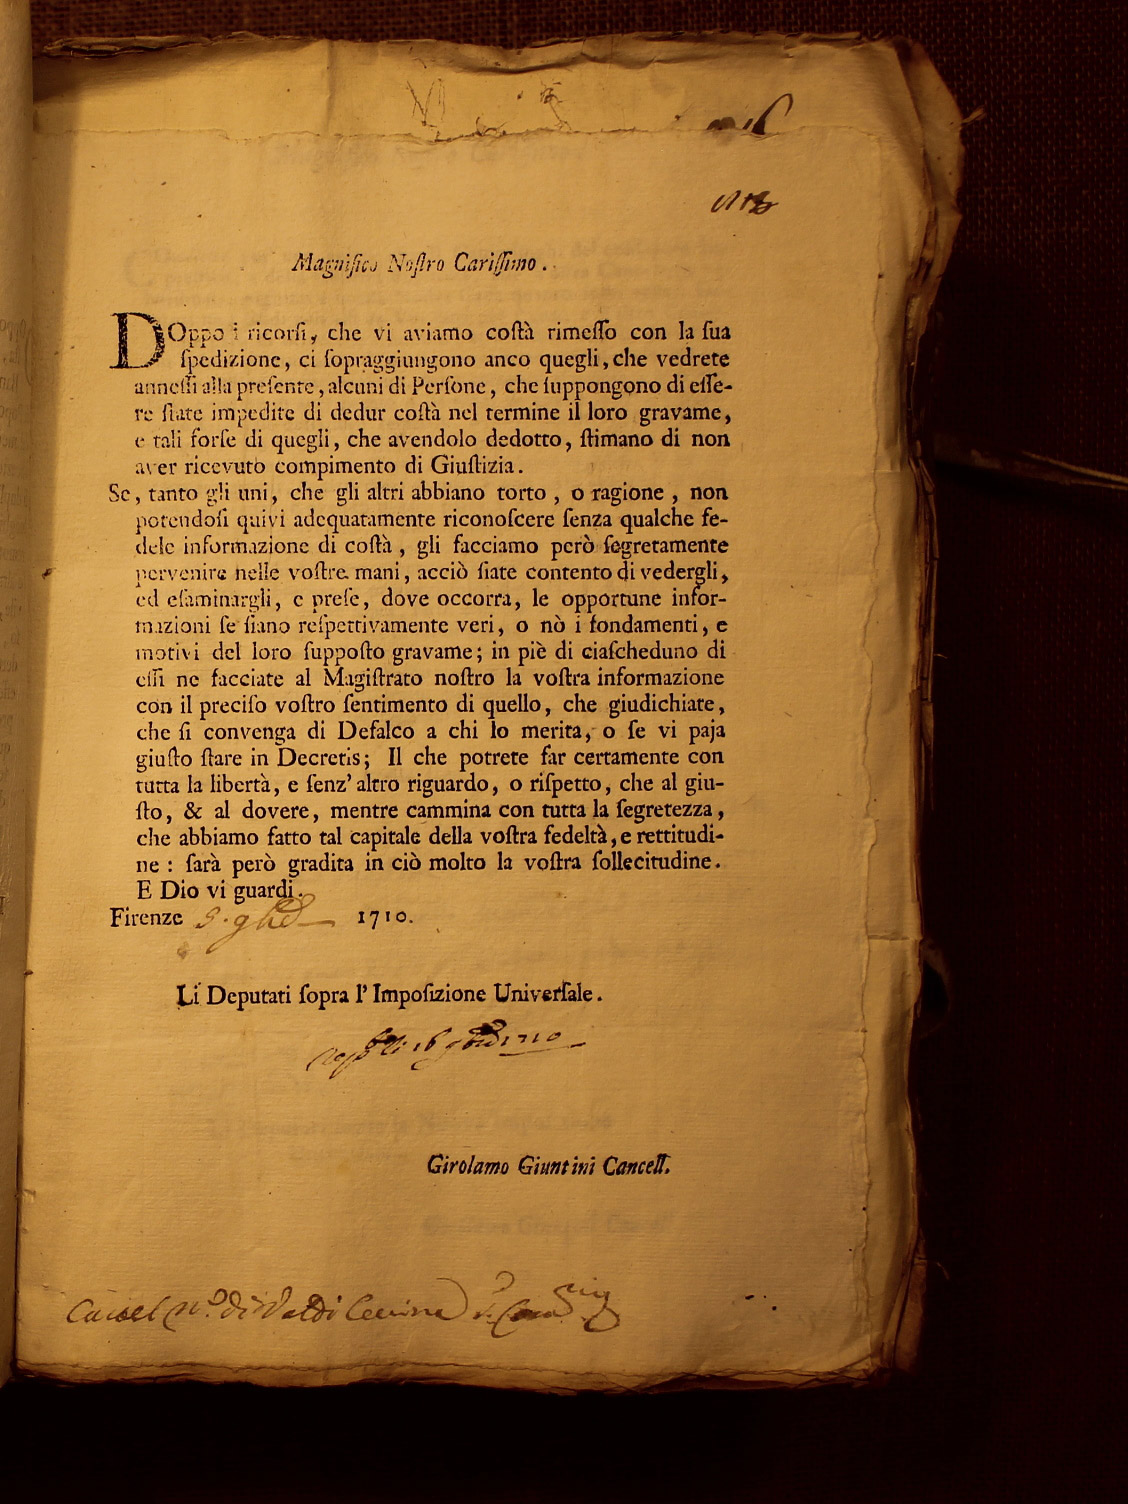 Magnifico Noſtro Cariſſimo.
DOppo i ricorſi, che vi aviamo coſtà rimeſſo con la ſua
ſpedizione, ci ſopraggiungono anco quegli, che vedrete
anneſſi alla preſente, alcuni di Perſone, che ſuppongono di eſſe-
re ſtate impedite di dedur coſtà nel termine il loro gravame,
e tali forſe di quegli, che avendolo dedotto, ſtimano di non
aver ricevuto compimento di Giuſtizia.
Se, tanto gli uni, che gli altri abbiano torto, o ragione, non
potendoſi quivi adequatamente riconoſcere ſenza qualche fe-
dele informazione di coſtà, gli facciamo però ſegretamente
pervenire nelle voſtre mani, acciò ſiate contento di vedergli,
ed eſaminargli, e preſe, dove occorra, le opportune infor-
mazioni ſe ſiano reſpettivamente veri, o nò i fondamenti, e
motivi del loro ſuppoſto gravame; in piè di ciaſcheduno di
eſſi ne facciate al Magiſtrato noſtro la voſtra informazione
con il preciſo voſtro ſentimento di quello, che giudichiate,
che ſi convenga di Defalco a chi lo merita, o ſe vi paja
giuſto ſtare in Decretis; Il che potrete far certamente con
tutta la libertà, e ſenz' altro riguardo, o riſpetto, che al giu-
ſto, & al dovere, mentre cammina con tutta la ſegretezza,
che abbiamo fatto tal capitale della voſtra fedeltà, e rettitudi-
ne: ſarà però gradita in ciò molto la voſtra ſollecitudine.
E Dio vi guardi.
Firenze 1710.
Li Deputati ſopra l' Impoſizione Univerſale.
1710
Girolamo Giuntini Cancell.
di Val di Cecina